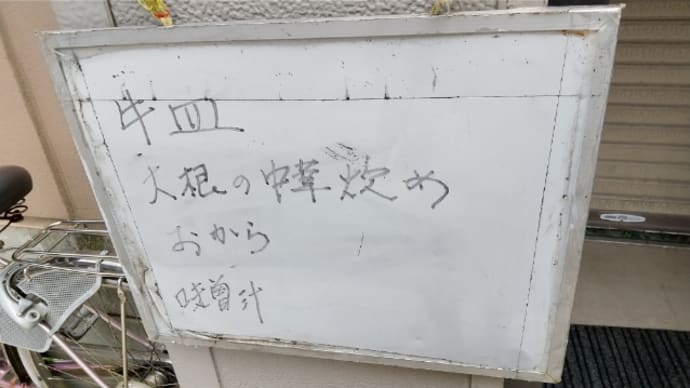 牛皿
大根の中華炒め
おから
味噌汁